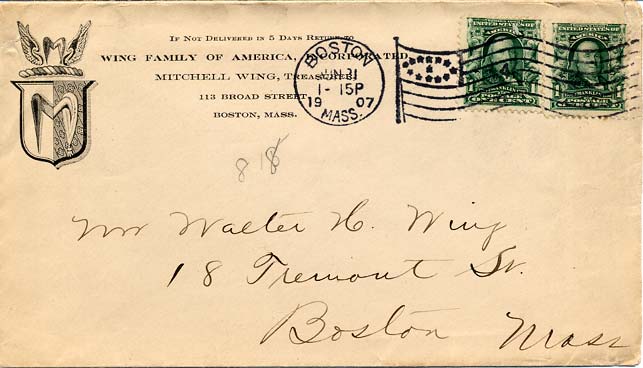 If Not Delivered in 5 Days Return to
WING FAMILY OF AMERICA, INCORPORATED,
MITCHELL WING, Treasurer
113 BROAD STREET
BOSTON, MASS.
M
BOSTON
1-15P
1907
MASS.
UNITED STATES OF AMERICA
FRANKLIN
POSTAGE
UNITED STATES OF AMERICA
FRANKLIN
POSTAGE
818
Mr Walter H. Wing
18 Tremont St.
Boston Mass